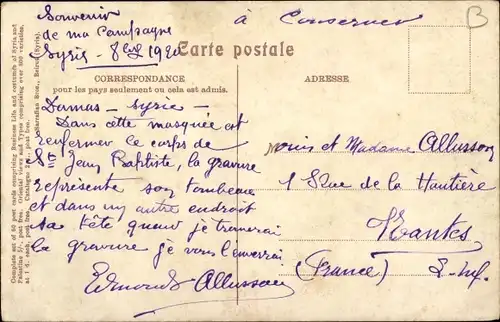 Souvenir
de ma campagne
Syrie - 8bre 1920
à Conserver
Carte postale
CORRESPONDANCE
pour les pays seulement ou cela est admis.
ADRESSE
B
Damas - Syrie -
Dans cette mosquée est
renfermer le corps de
St Jean Baptiste, la gravure
représente son tombeau
et dans un autre endroit
sa tête quand je trouverai
la gravure je vous l'enverrai
Edmond Allusson
et Madame Allusson
1 Rue de la Hautière
Nantes
(France) L-Inf.
Complete set of 60 post cards comprising Business Life and costumes of Syria and
Palestine 5/-, post free. Oriental views and Types comprising over 900 varieties.
Sarrafian Bros., Beirut (Syria).